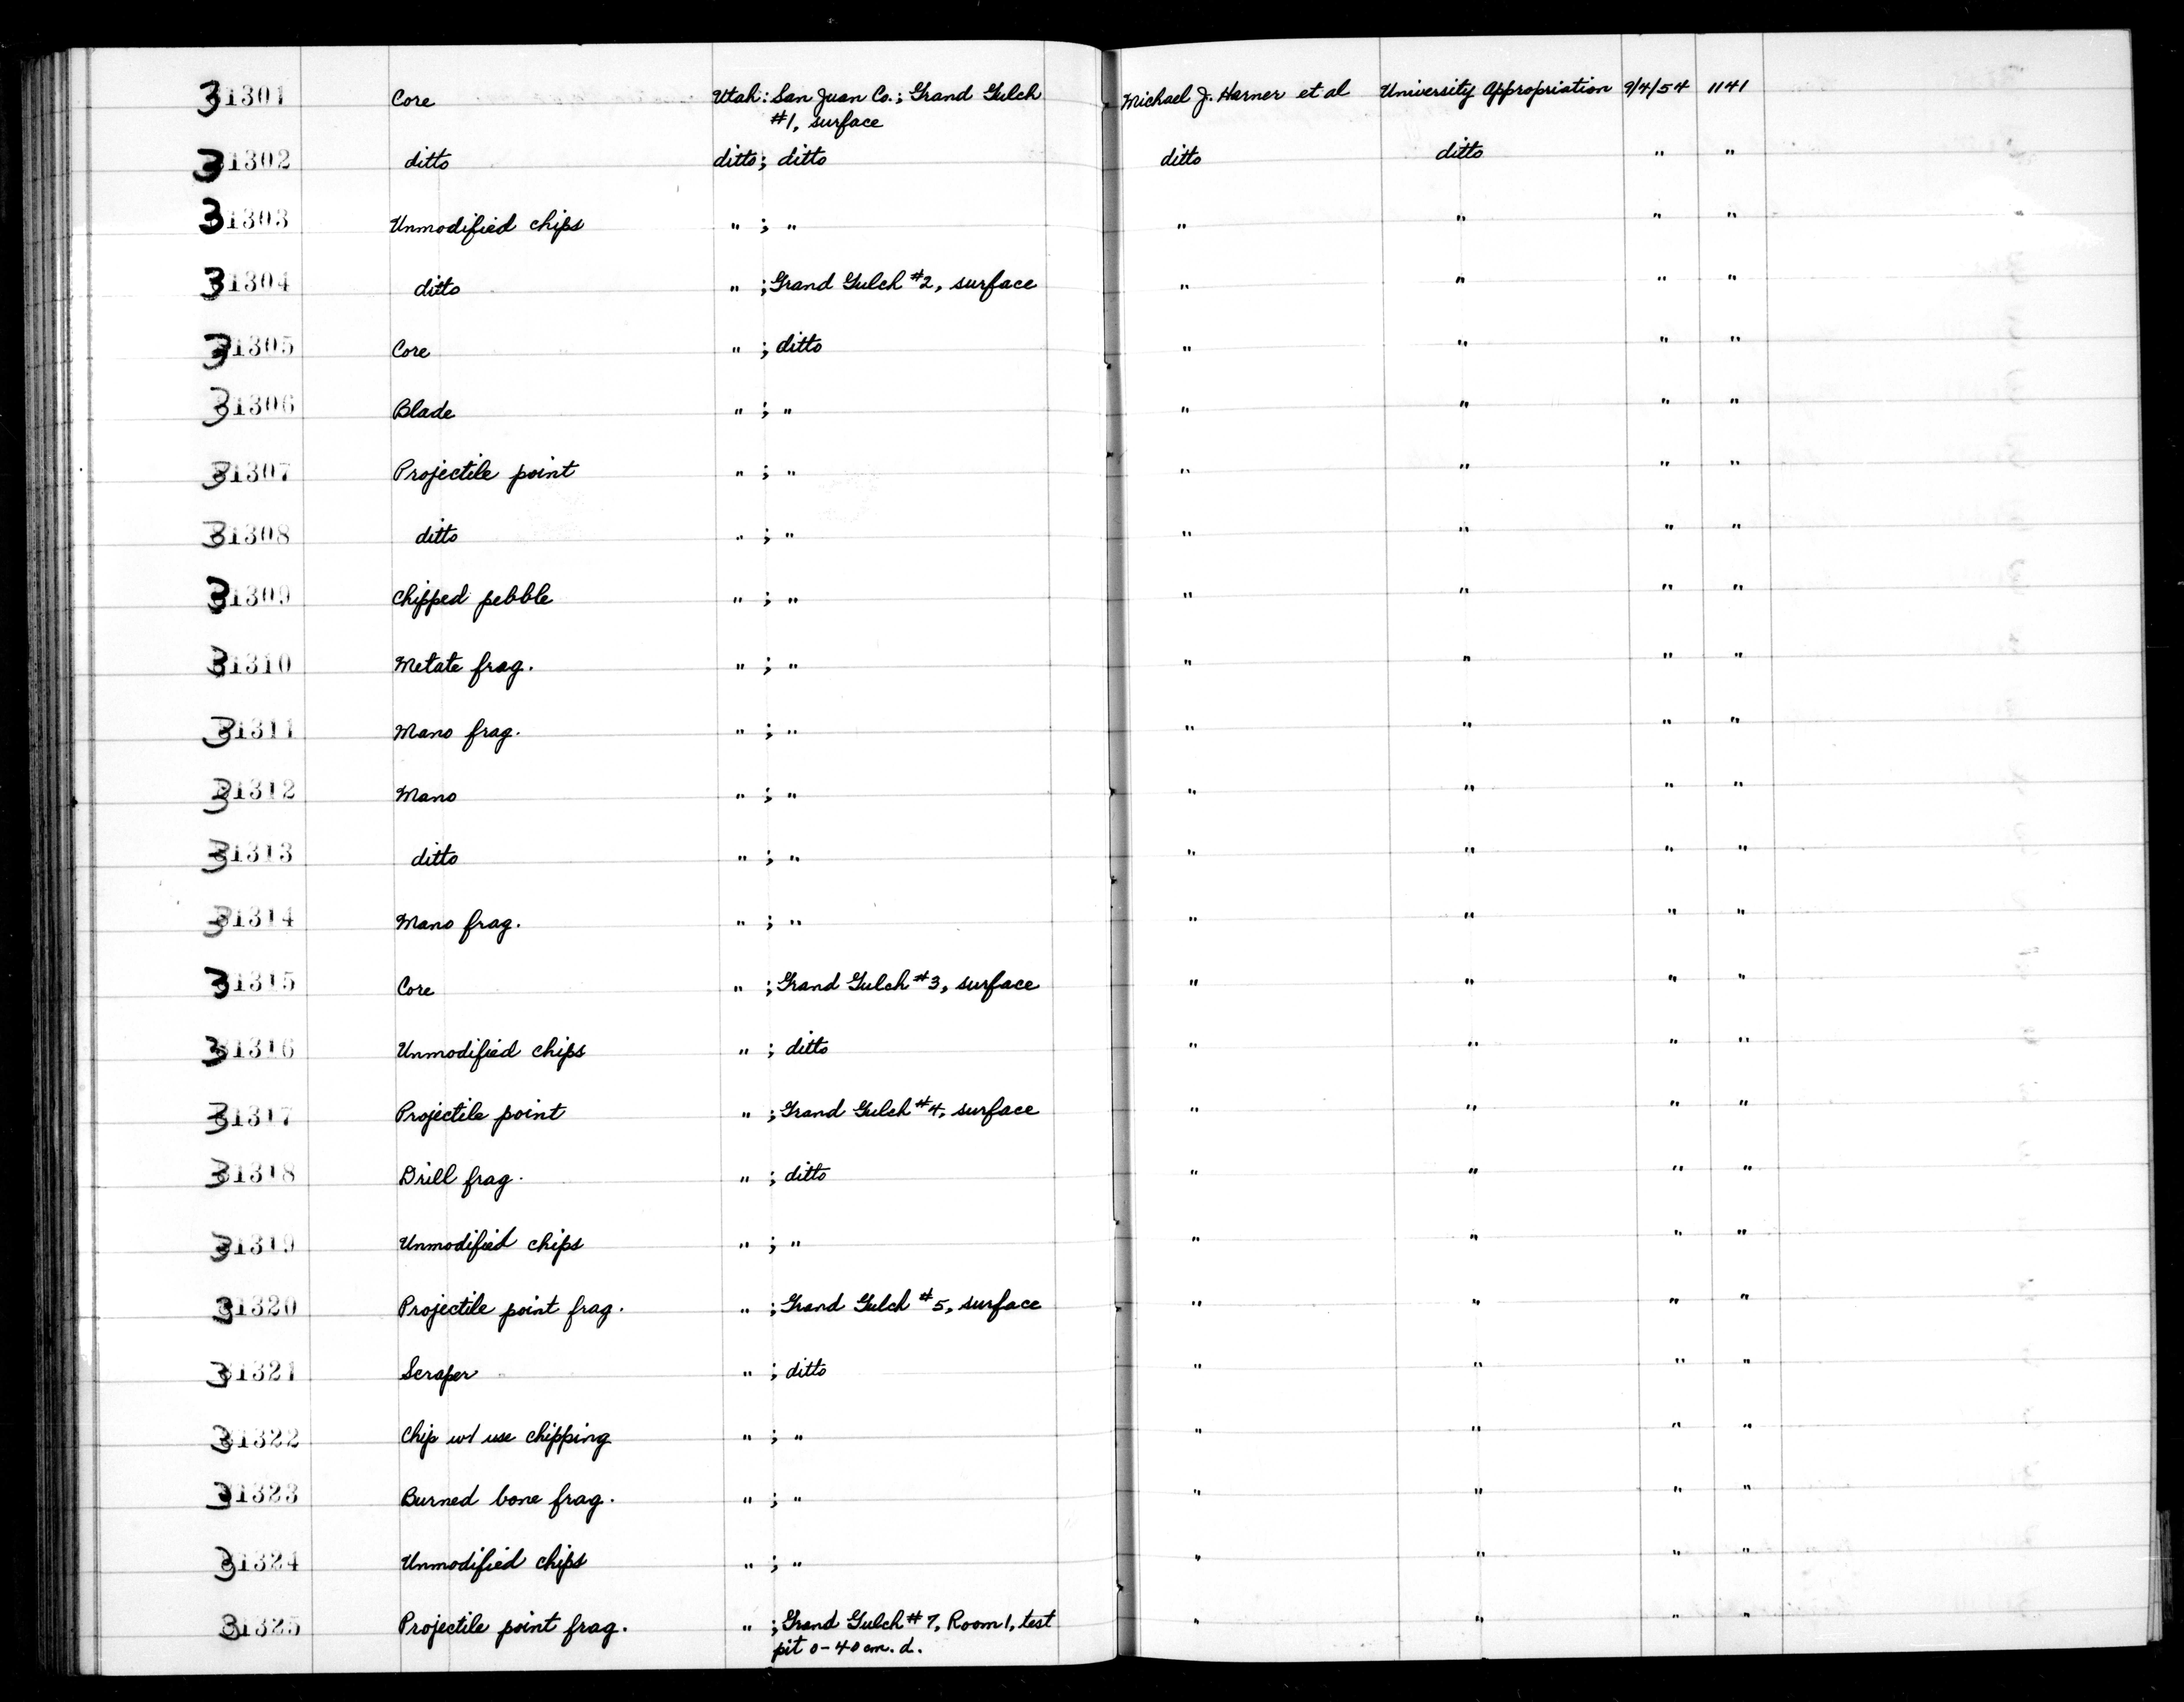 31301 Core Utah: San Juan Co.; Grand Gulch Michael J. Harner et al University Appropriation 9/4/54 1141
#1, surface
31302 ditto ditto; ditto ditto ditto " "
31303 Unmodified chips " ; " " " " "
31304 ditto " ; Grand Gulch #2, surface " " " "
31305 Core " ; ditto " " " "
31306 Blade " ; " " " " "
31307 Projectile point " ; " " " " "
31308 ditto " ; " " " " "
31309 Chipped pebble " ; " " " " "
31310 Metate frag. " ; " " " " "
31311 Mano frag. " ; " " " " "
31312 Mano " ; " " " " "
31313 ditto " ; " " " " "
31314 Mano frag. " ; " " " " "
31315 Core " ; Grand Gulch #3, surface " " " "
31316 Unmodified chips " ; ditto " " " "
31317 Projectile point " ; Grand Gulch #4, surface " " " "
31318 Drill frag. " ; ditto " " " "
31319 Unmodified chips " ; " " " " "
31320 Projectile point frag. " ; Grand Gulch #5, surface " " " "
31321 Scraper " ; ditto " " " "
31322 Chip w/ use chipping " ; " " " " "
31323 Burned bone frag. " ; " " " " "
31324 Unmodified chips " ; " " " " "
31325 Projectile point frag. " ; Grand Gulch #7, Room 1, test " " " "
pit 0-40 cm. d.